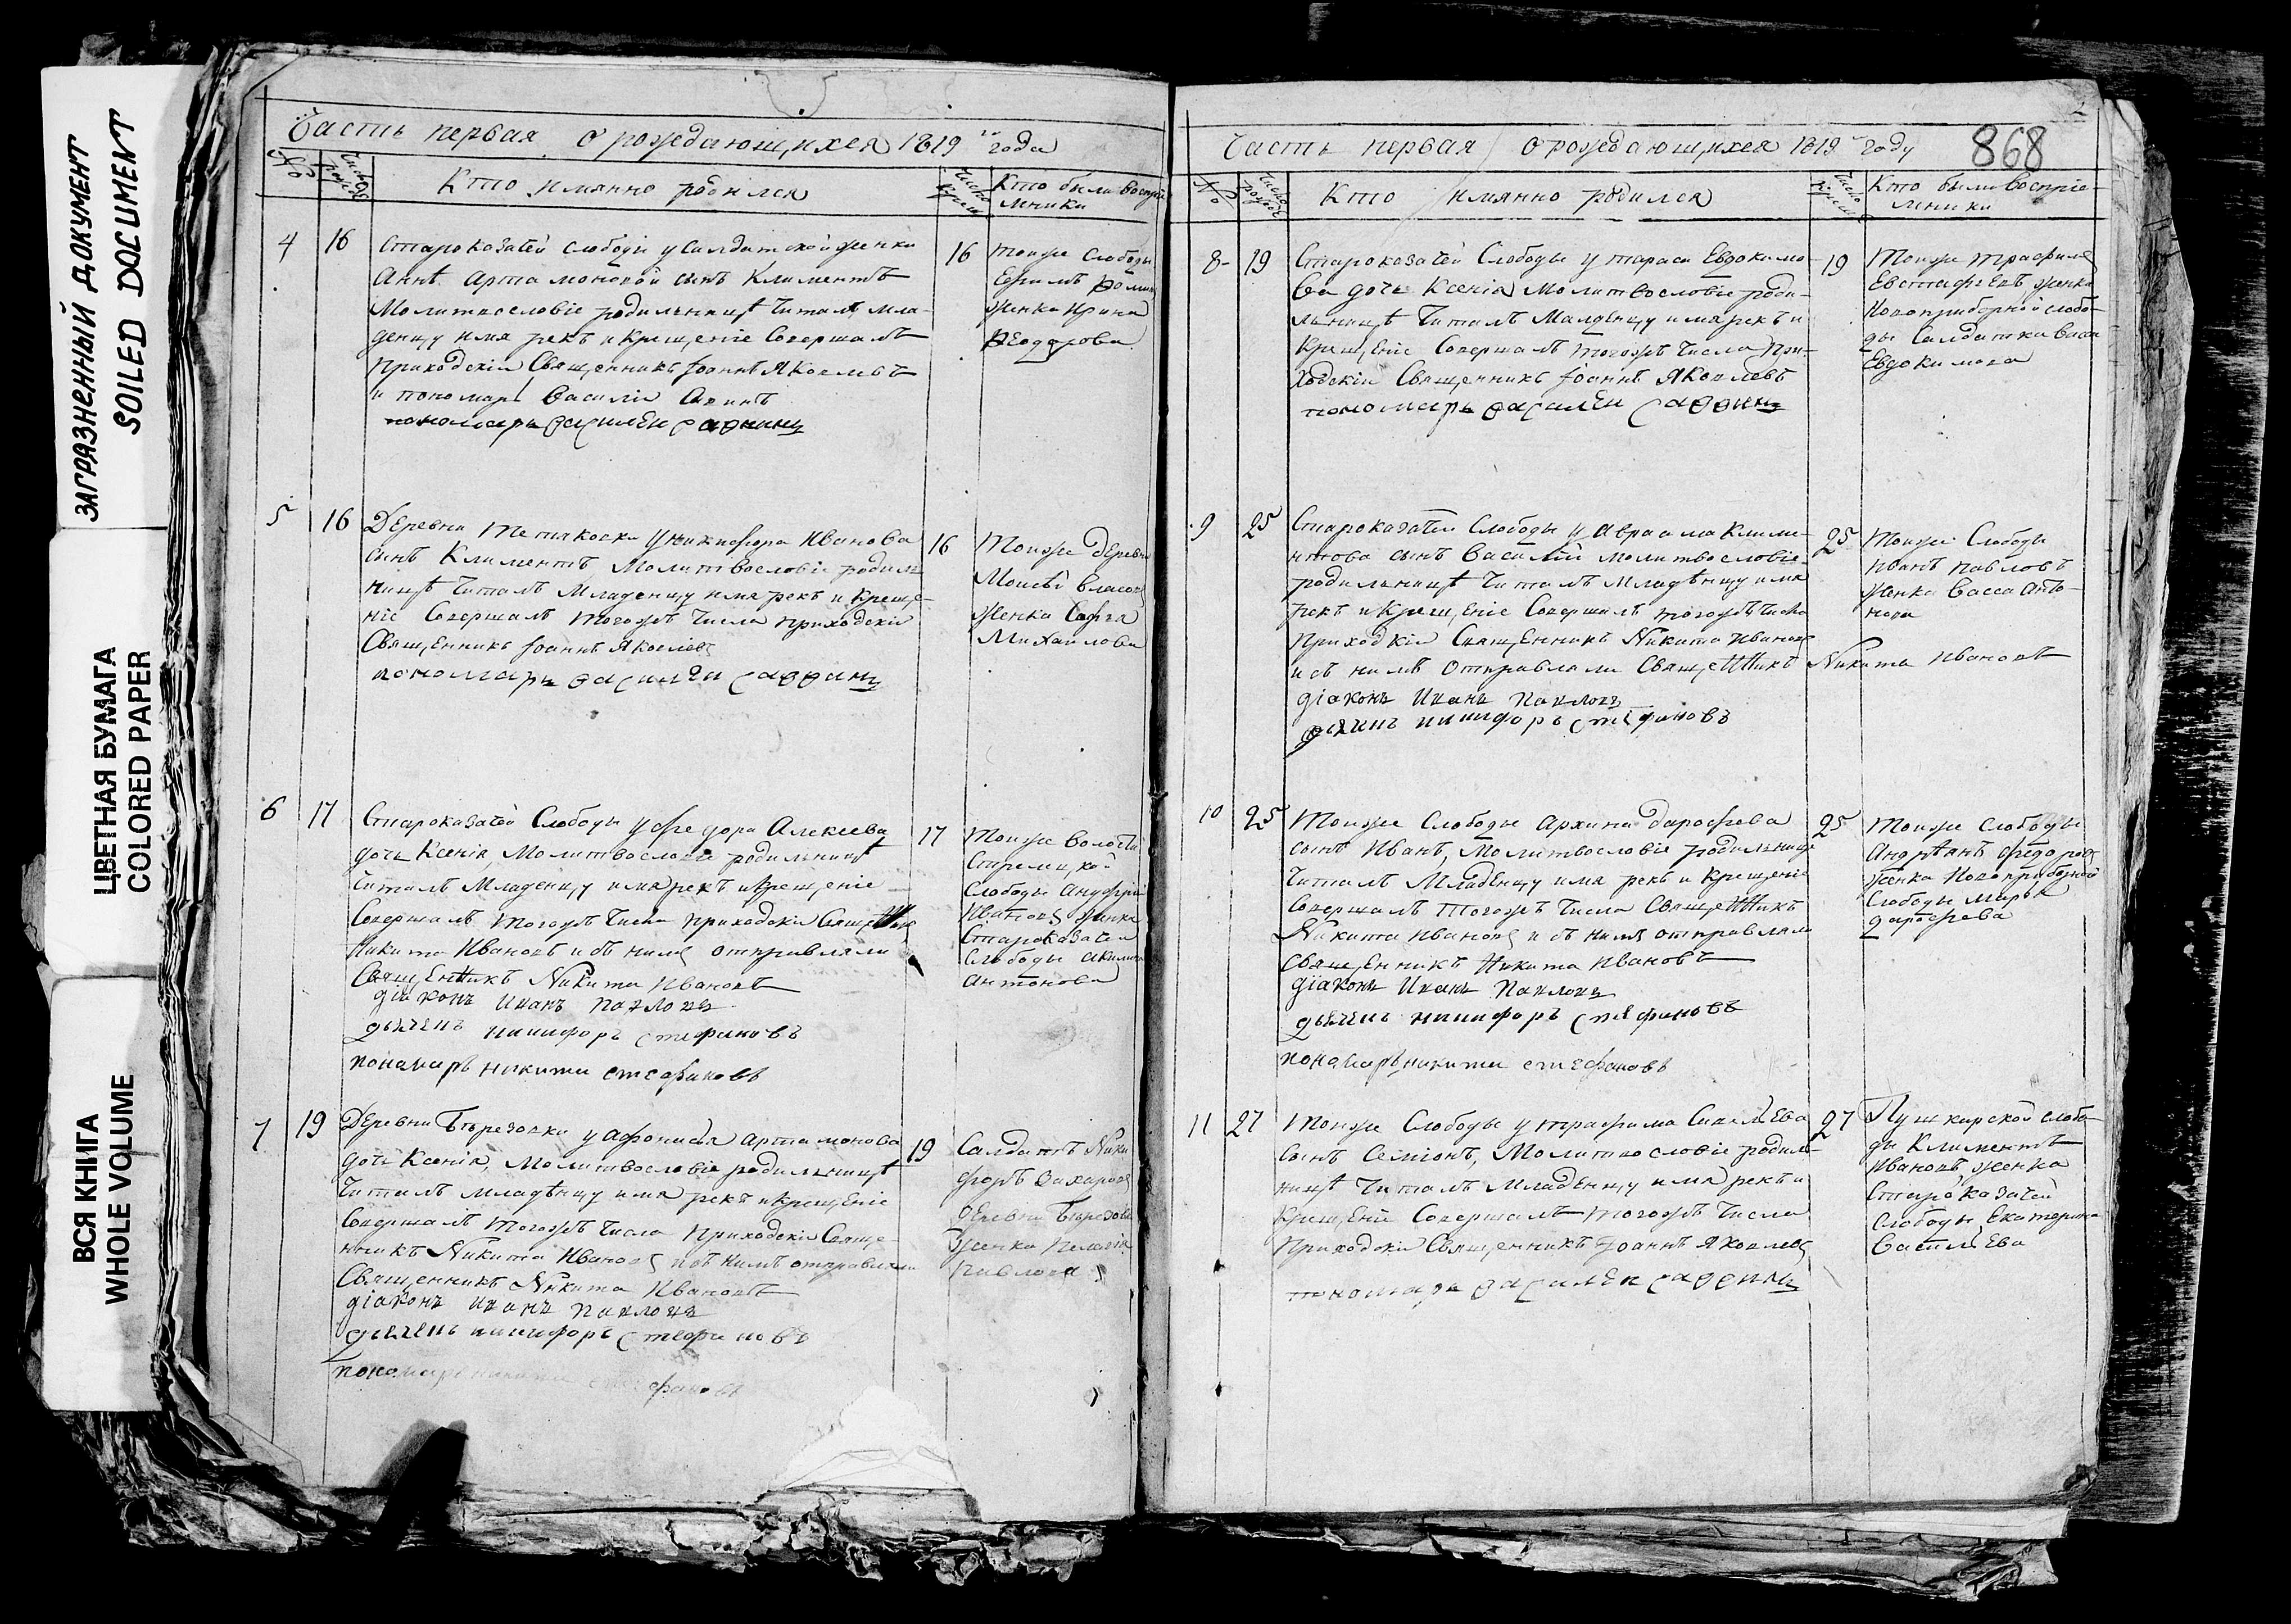 ЗАГРЯЗНЕННЫЙ ДОКУМЕНТ
SOILED DOCUMENT
ЦВЕТНАЯ БУМАГА
COLORED PAPER
ВСЯ КНИГА
WHOLE VOLUME
Часть первая о рождающихся 1819 года
№ Число рожд
Кто имянно родился
Кто были воспрiе-
мники
4 16
Староказачей слободы у Салдатской женки
Анны Артамоновой сынъ Климентъ
Молитвословiе родильницѣ Читалъ мла-
денцу имя рекъ и крещенiе Совершалъ
Приходскiи Священникъ Iоаннъ Яковлевъ
и пономарь Василiй Савинъ
пономарь василеи саввинъ
16
тоиже Слободы
Ефимъ
женка Ирина
Ѳеодорова
5 16
Деревни Тетяковки у Никифора Иванова
сынъ Климентъ Молитвословiе родиль
ницѣ Читалъ Младенцу имя рекъ и Креще-
нiе Совершалъ тогожъ Числа приходскiи
Священникъ Iоаннъ Яковлевъ
пономарь василеи саввинъ
16
Тоиже деревни
Моисѣй Власовъ
женка Софiя
Михаилова
6 17
Староказачей Слободы у Федора Алексеева
дочь Ксенiя, Молитвословiе родильницѣ
Читалъ Младенцу имя рекъ и крещенiе
Совершалъ тогожъ Числа приходскiи Священникъ
Никита Ивановъ и съ нимъ отправляли
Священникъ Никита Ивановъ
дiаконъ Иванъ Павловъ
дьячекъ никифоръ стефановъ
понамарь никита стефановъ
17
Тоиже волости
Стрелицкой
Слободы Андрей
Ивановъ женка
Староказачей
Слободы Акилина
Антонова
7 19
Деревни Березовки у Афонасiя Артамонова
дочь Ксенiя, Молитвословiе родильницѣ
Читалъ младѣнцу имя рекъ и крещенiе
Совершалъ тогожъ Числа Приходскiи Свяще-
нникъ Никита Ивановъ и съ нимъ отправляли
Священникъ Никита Ивановъ
дiаконъ Иванъ Павловъ
дьячекъ никифоръ стефановъ
пономарь никита стефановъ
19
Салдатъ Ники
форъ Захаровъ
деревни Березовки
женка Пелагiя
Павлова
Часть первая о рождающихся 1819 году
868
№ Число рожд
Кто имянно родился
Кто были воспрiе-
мники
8 19
Староказачей Слободы у тараса Евдокимо-
ва дочь Ксенiя Молитвословiе роди-
льницѣ Читалъ Младенцу имя рекъ и
Крещенiе Совершалъ тогожъ Числа При-
ходскiи Священникъ Iоаннъ Яковлевъ
пономарь василеи саввинъ
19
Тоиже Трофима
Евстафьевъ женка
Новоприборной слобо-
ды Салдатка Васса
Евдокимова
9 25
Староказачеи Слободы у Авраама Климе-
нтова сынъ Василiй молитвословiе
родильницѣ Читалъ Младѣнцу имя
рекъ и Крещенiе Совершалъ тогожъ Числа
Приходскiи Священникъ Никита Ивановъ
и съ нимъ отправляли Священникъ Никита Ивановъ
дiаконъ Иванъ Павловъ
дьячекъ никифоръ стефановъ
25
Тоиже Слободы
Иванъ Павловъ
женка Васса Анто-
нова
10 25
Тоиже Слободы Архипа Дарофеева
сынъ Иванъ, Молитвословiе родильнице
Читалъ Младенцу имя рекъ и Крещенiе
Совершалъ тогожъ Числа Священникъ
Никита Ивановъ и съ нимъ отправляли
Священникъ Никита Ивановъ
дiаконъ Иванъ Павловъ
дьячекъ никифоръ стефановъ
понамарь никита стефановъ
25
Тоиже Слободы
Андрѣянъ Федоровъ
женка Новоприборной
Слободы Марья
дарофеева
11 27
Тоиже Слободы у трафима Савельева
Сынъ Семiонъ, Молитвословiе родиль-
ницѣ Читалъ Младенцу имя рекъ и
Крещенiе Совершалъ тогожъ Числа
Приходскiи Священникъ Iоаннъ Яковлевъ
пономарь василеи саввинъ
27
Пушкарской слобо-
ды Климентъ
Ивановъ, женка
Староказачей
слободы Екатерина
Васильева